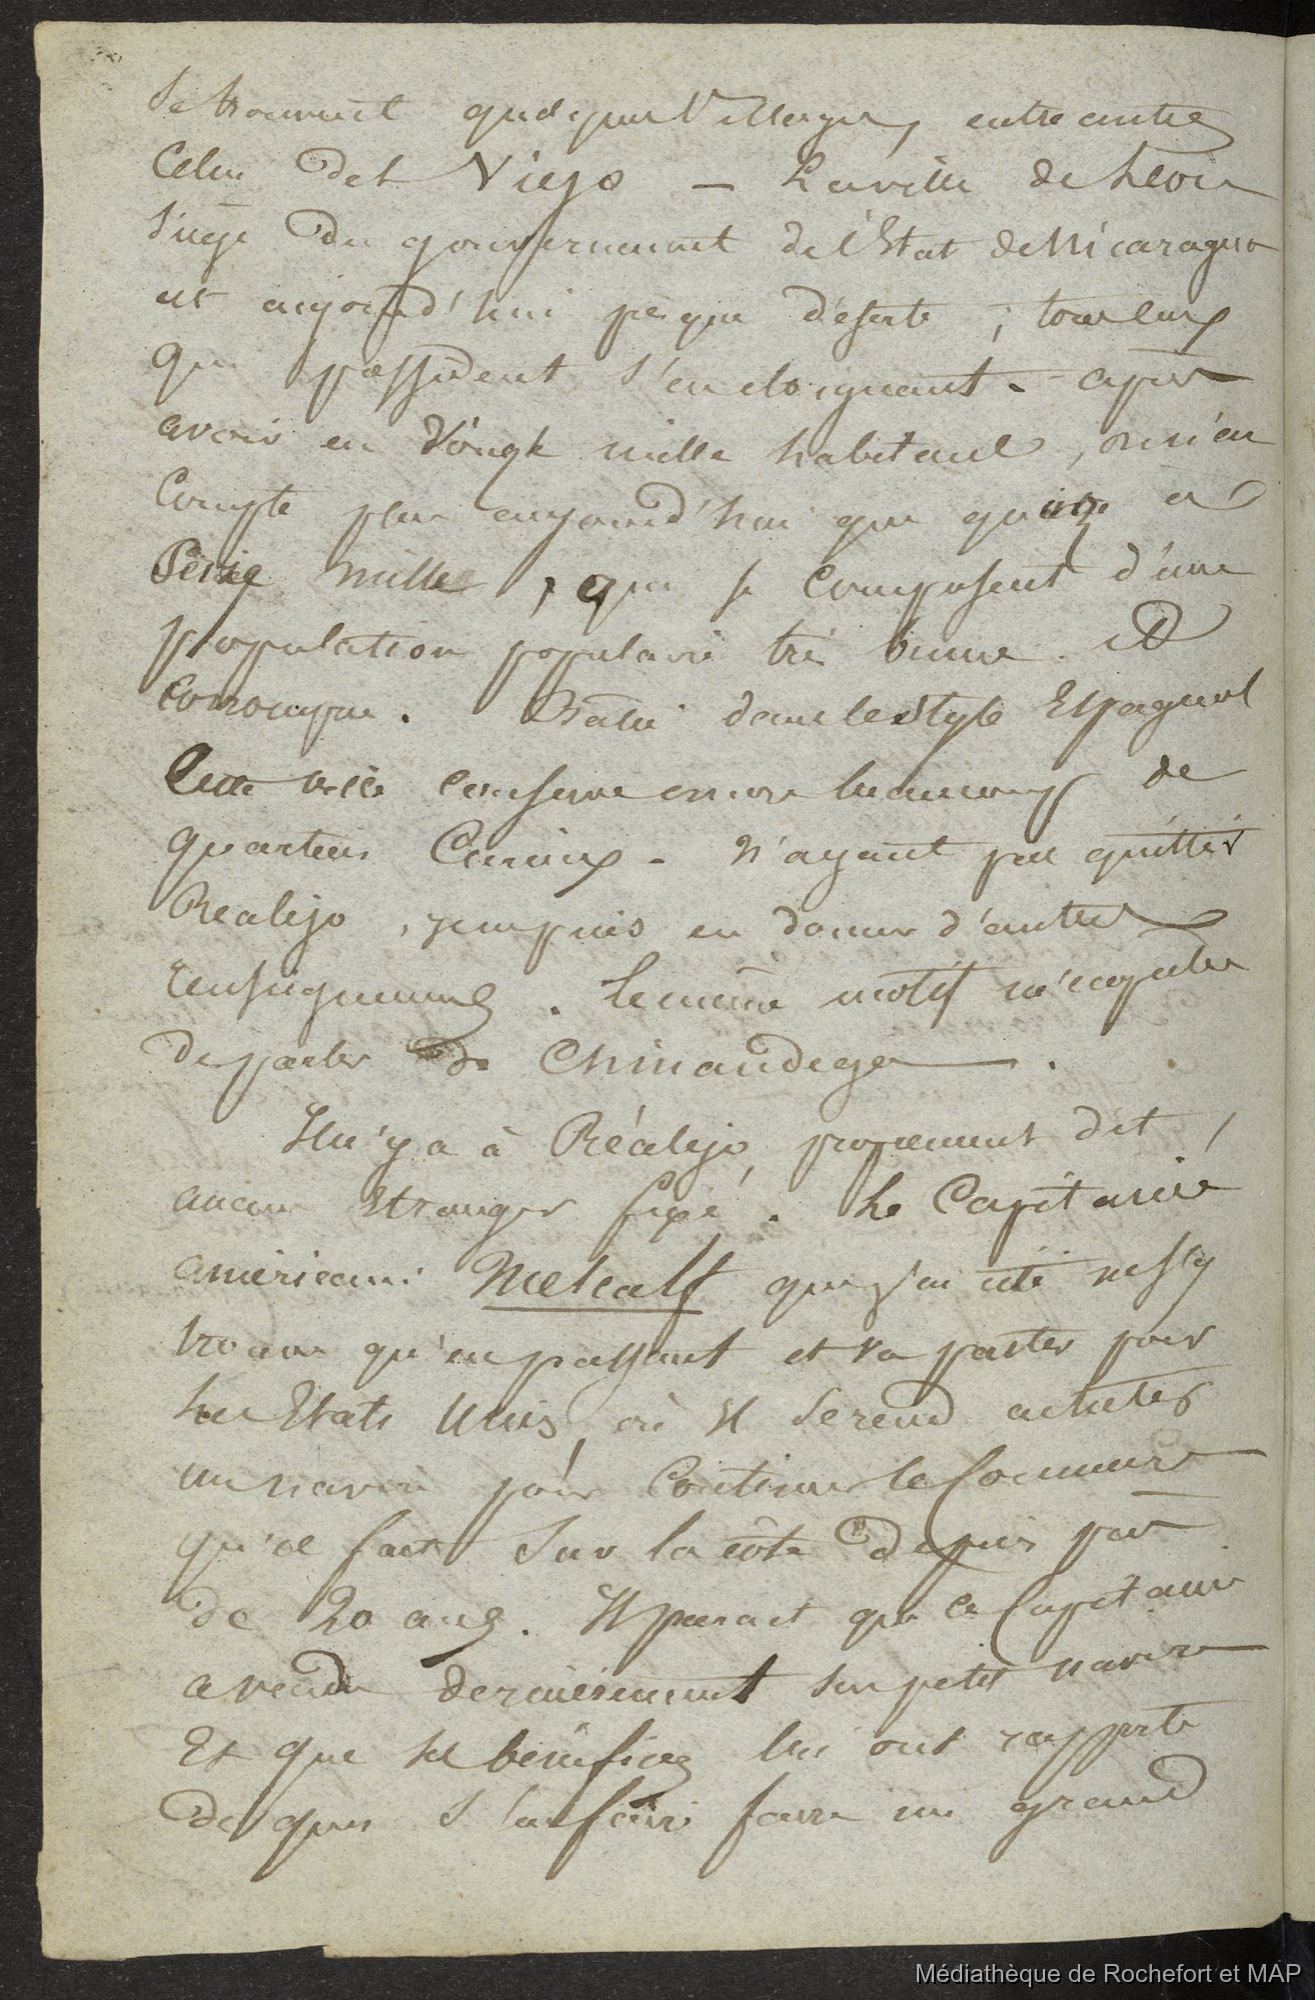 Se trouvent quelques Villages, entre autres
Celui del Viejo — La ville de Léon
Siège du gouvernement de l'Etat de Nicaragua
est aujourd'hui presque déserte ; tous ceux
qui possèdent s'en éloignant. — après
avoir eu Vingt mille habitans, on n'en
Compte plus aujourd'hui que quinze à
Seize mille, qui se Composent d'une
population populaire très
Corrompue. Bâtie dans le style Espagnol
Cette ville conserve encore beaucoup de
quartiers Curieux — N'ayant pas quitter
Realejo, je ne puis en donner d'autres
renseignemens. Le même motif m'empêche
de parler de Chinandega.
Il n'y a à Réalejo, proprement dit,
aucun Etranger fixé. Le Capitaine
américain Metcalf que j'ai cité ne s'y
trouve qu'en passant et va partir pour
Les Etats Unis, où il se rend acheter
un navire pour Continuer le Commerce
qu'il fait Sur la côte depuis près
de 20 ans. Il parait que ce Capitaine
a vendu dernièrement son petit navire
Et que ses bénéfices lui ont rapporté
de quoi faire un grand
Médiathèque de Rochefort et MAP